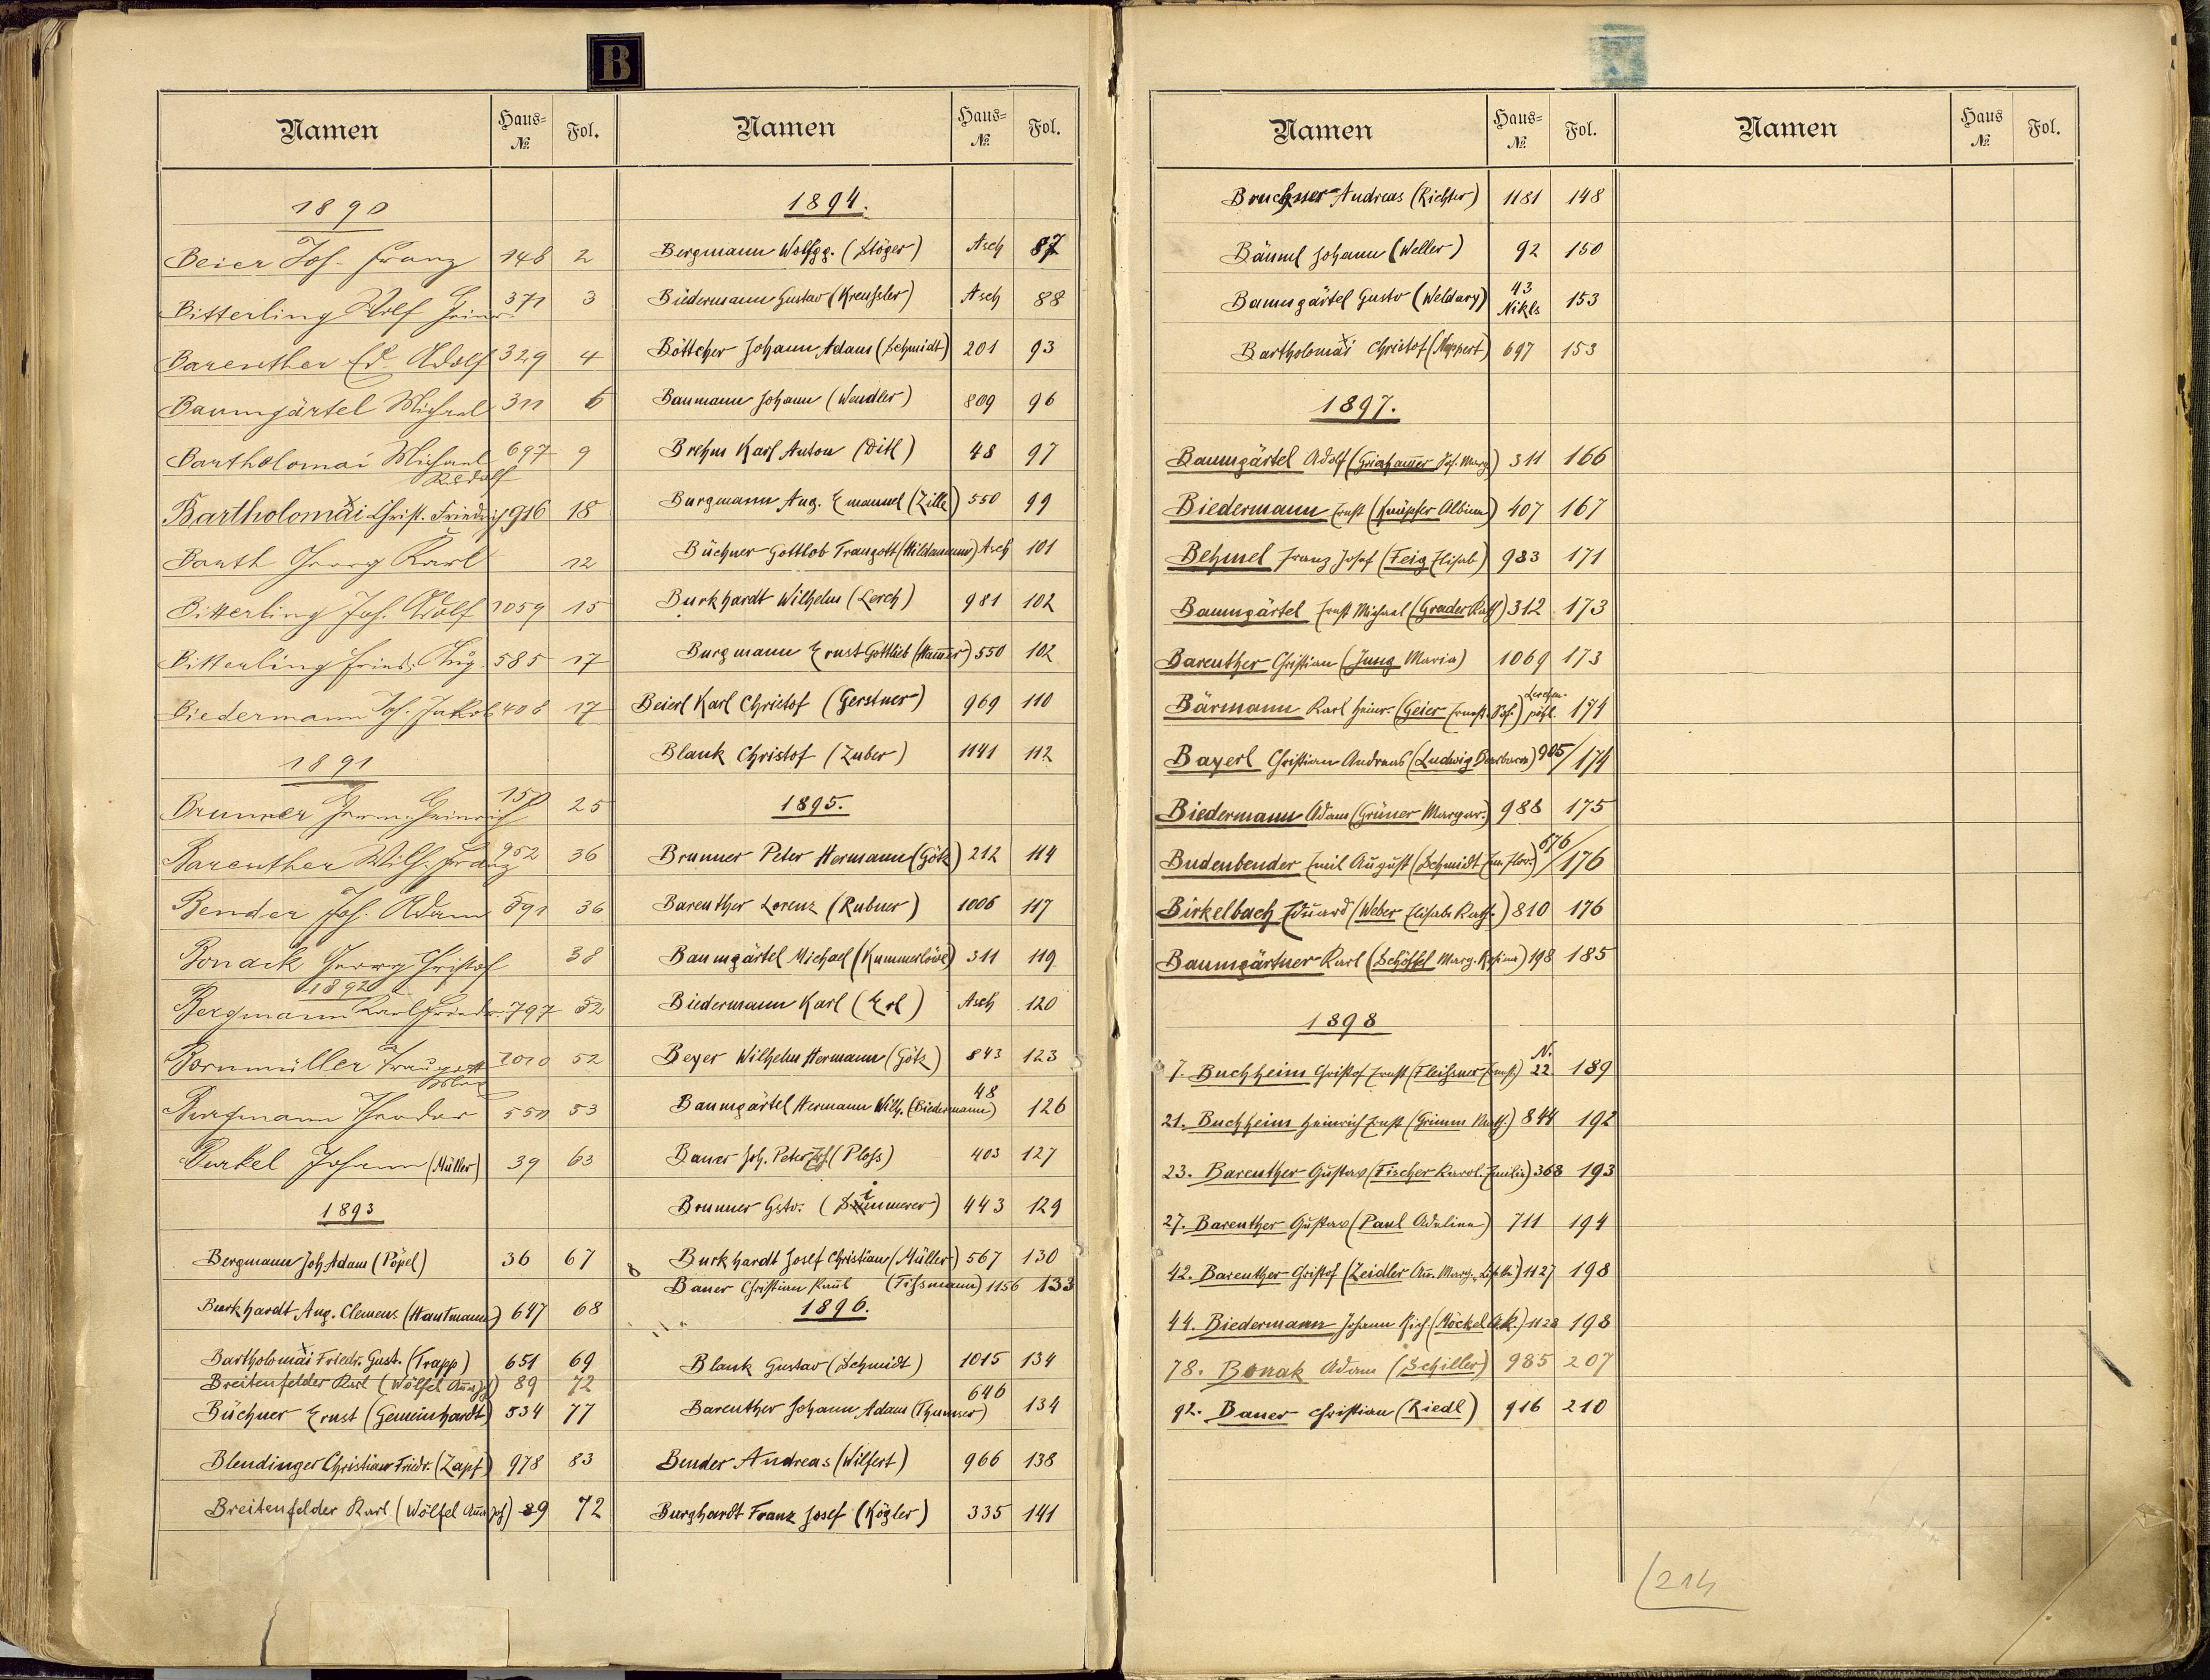 B
Namen Haus= No. Fol.
1890
Beier Joh. Franz 148 2
Bitterling Wolf Heinr. 371 3
Bareuther Ed. Adolf 329 4
Baumgärtel Michael 311 6
Bartholomai Michael 697 9
Rudolf
Bartholomäi Christ. Friedrich 916 18
Barth Georg Karl 12
Bitterling Joh. Adolf 1059 15
Bitterling Fried. Aug. 585 17
Biedermann Joh. Jakob 408 17
1891
Brunner Herm. Heinrich 150 25
Bareuther Wilh. Franz 952 36
Bender Joh. Adam 591 36
Bonack Georg Christof 38
1892
Bergmann Karl Friedr. 797 52
Bornmüller Traugott 1010 52
Burgmann Theodor 550 53
Burkel Johann (Müller) 39 63
1893
Bergmann Joh. Adam (Pöpel) 36 67
Burkhardt Aug. Clemens (Hautmann) 647 68
Bartholomäi Friedr. Gust. (Trapp) 651 69
Breitenfelder Karl (Wölfel Anna) 89 72
Büchner Ernst (Gemeinhardt) 534 77
Blendinger Christian Friedr. (Zapf) 978 83
Breitenfelder Karl (Wölfel Anna) 89 72
Namen Haus= No. Fol.
1894.
Bergmann Wolfgg. (Stöger) Asch 87
Biedermann Gustav (Kreussler) Asch 88
Böttcher Johann Adam (Schmidt) 201 93
Baumann Johann (Wendler) 809 96
Brehm Karl Anton (Ditl) 48 97
Burgmann Aug. Emanuel (Zille) 550 99
Büchner Gottlob Traugott (Hildamann) Asch 101
Burkhardt Wilhelm (Lerch) 981 102
Burgmann Ernst Gottlieb (Hammer) 550 102
Beierl Karl Christof (Gerstner) 969 110
Blank Christof (Zuber) 1141 112
1895.
Brunner Peter Hermann (Götz) 212 114
Bareuther Lorenz (Rubner) 1006 117
Baumgärtel Michael (Kummerlöwe) 311 119
Biedermann Karl (Erl) Asch 120
Beyer Wilhelm Hermann (Götz) 843 123
Baumgärtel Hermann Wilh. (Biedermann) 48 126
Bauer Joh. Peter (Ploss) 403 127
Brunner Gstv. (Simmerer) 443 129
Burkhardt Josef Christian (Müller) 567 130
Bauer Christian Karl (Tissmann) 1156 133
1896.
Blank Gustav (Schmidt) 1015 134
Bareuther Johann Adam (Thumser) 646 134
Bender Andreas (Wilfert) 966 138
Burghardt Franz Josef (Kögler) 335 141
Namen Haus= No. Fol.
Bruckner Andreas (Richter) 1181 148
Bäuml Johann (Weller) 92 150
Baumgärtel Gustv (Weldary) 43 Nikls 153
Bartholomäi Christof (Meppert) 697 153
1897.
Baumgärtel Adolf (Griesshammer Joh. Marg.) 311 166
Biedermann Ernst (Knüpfer Albina) 407 167
Behmel Franz Josef (Feig Elisab) 983 171
Baumgärtel Ernst Michael (Grader Kath) 312 173
Bareuther Christian (Jung Maria) 1069 173
Bärmann Karl Heinr. (Geier Ernest. Sof.) Lerchenpöhl. 174
Bayerl Christian Andreas (Ludwig Barbara) 905/174
Biedermann Adam (Grüner Margar.) 988 175
Budenbender Emil August (Schmidt Em. Flor.) 676/176
Birkelbach Eduard (Weber Elisab. Kath.) 810 176
Baumgärtner Karl (Schöffel Marg. Rosina) 198 185
1898
7. Buchheim Christof Ernst (Fleissner Ernest.) N. 22 189
21. Buchheim Heinrich Ernst (Grimm Kath.) 844 192
23. Bareuther Gustav (Fischer Karol. Emilie) 368 193
27. Bareuther Gustav (Paul Adeline) 711 194
42. Bareuther Christof (Zeidler An. Marg. Lisette) 1127 198
44. Biedermann Johann Rich. (Möckel A.K.) 1128 198
78. Bonak Adam (Schiller) 985 207
92. Bauer Christian (Riedl) 916 210
Namen Haus No. Fol.
214